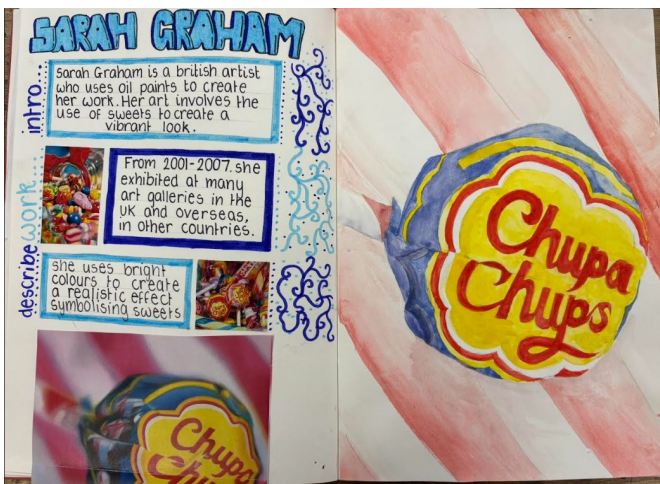 SARAH GRAHAM
intro...
Sarah Graham is a british artist
who uses oil paints to create
her work. Her art involves the
use of sweets to create a
vibrant look.
describe work...
From 2001-2007. she
exhibited at many
art galleries in the
UK and overseas,
in other countries.
she uses bright
colours to create
a realistic effect
symbolising sweets
Chupa
Chups
Chupa
Chups